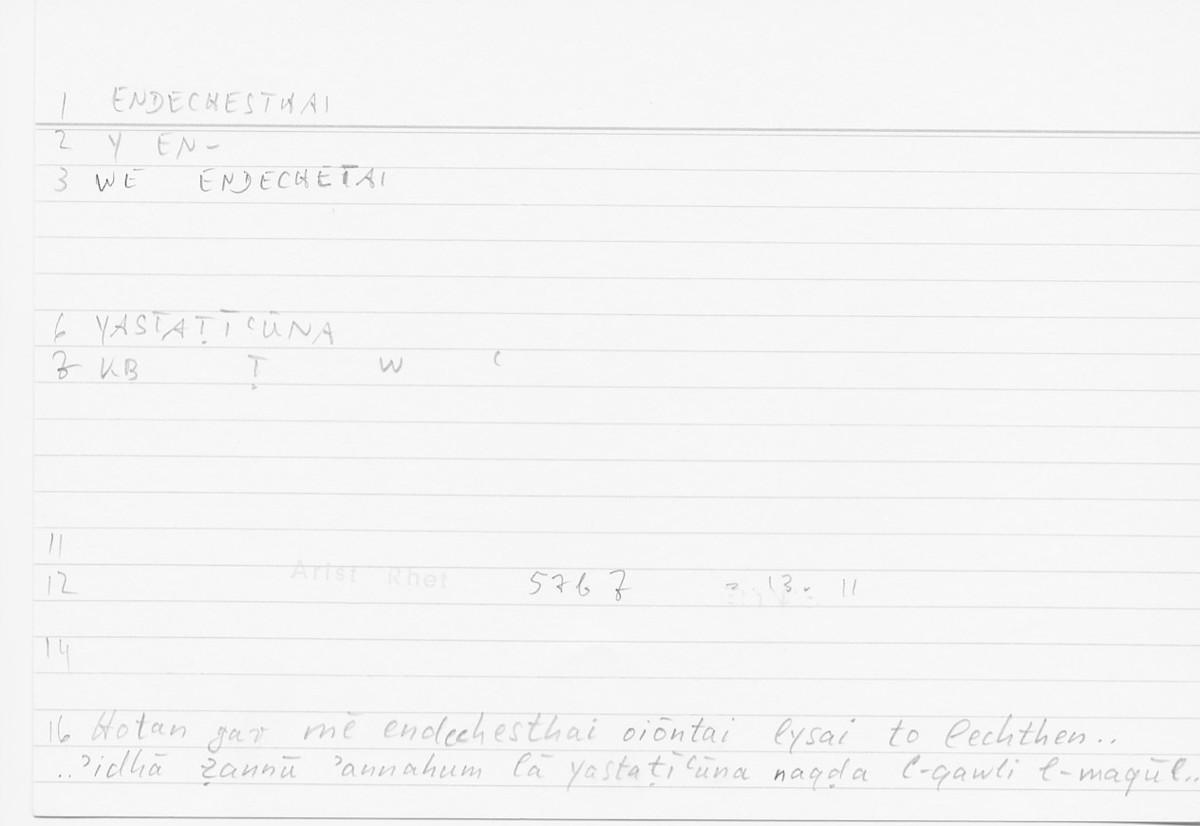 1 ENDECHESTHAI
2 Y EN-
3 WE ENDECHETAI
6 YASTAṬĪʿŪNA
7 KB Ṭ W ʿ
11
12 Arist Rhet 57b7 = 13. 11
14
16 Hotan gar mē endechesthai oiōntai lysai to lechthen..
..ʾidhā ẓannū ʾannahum lā yastaṭīʿūna naqḍa l-qawli l-maqūl..